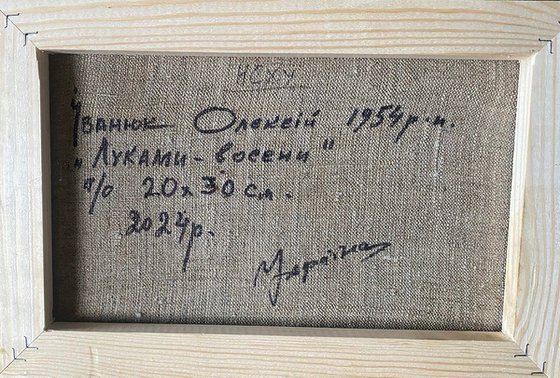 НСХУ
Іванюк Олексій 1954 р.н.
"Луками-восени"
п/о 20х30 см.
2024р.
Україна